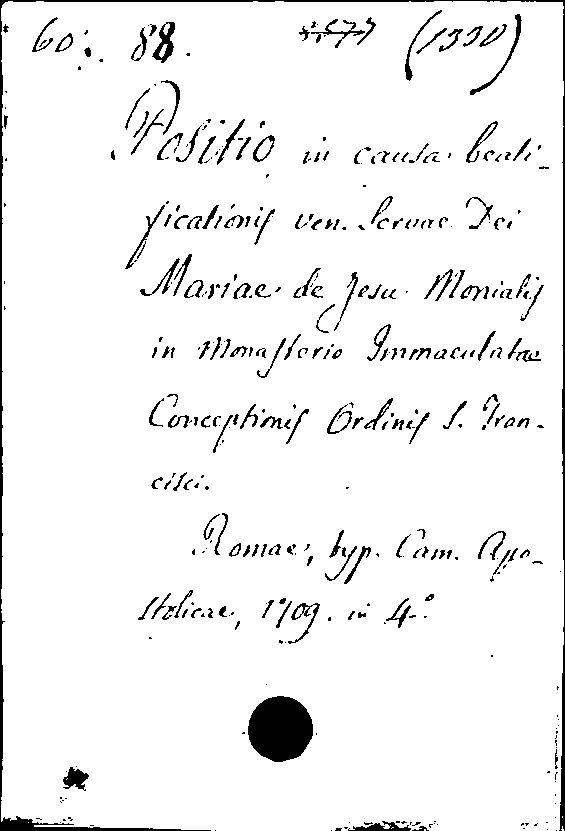 60. 88. (1330)
Positio in causa beati-
ficationis ven. Servae Dei
Mariae de Jesu Monialis
in Monasterio Immaculatae
Conceptionis Ordinis S. Fran-
cisci.
Romae, typ. Cam. Apo-
stolicae, 1709. in 4.°